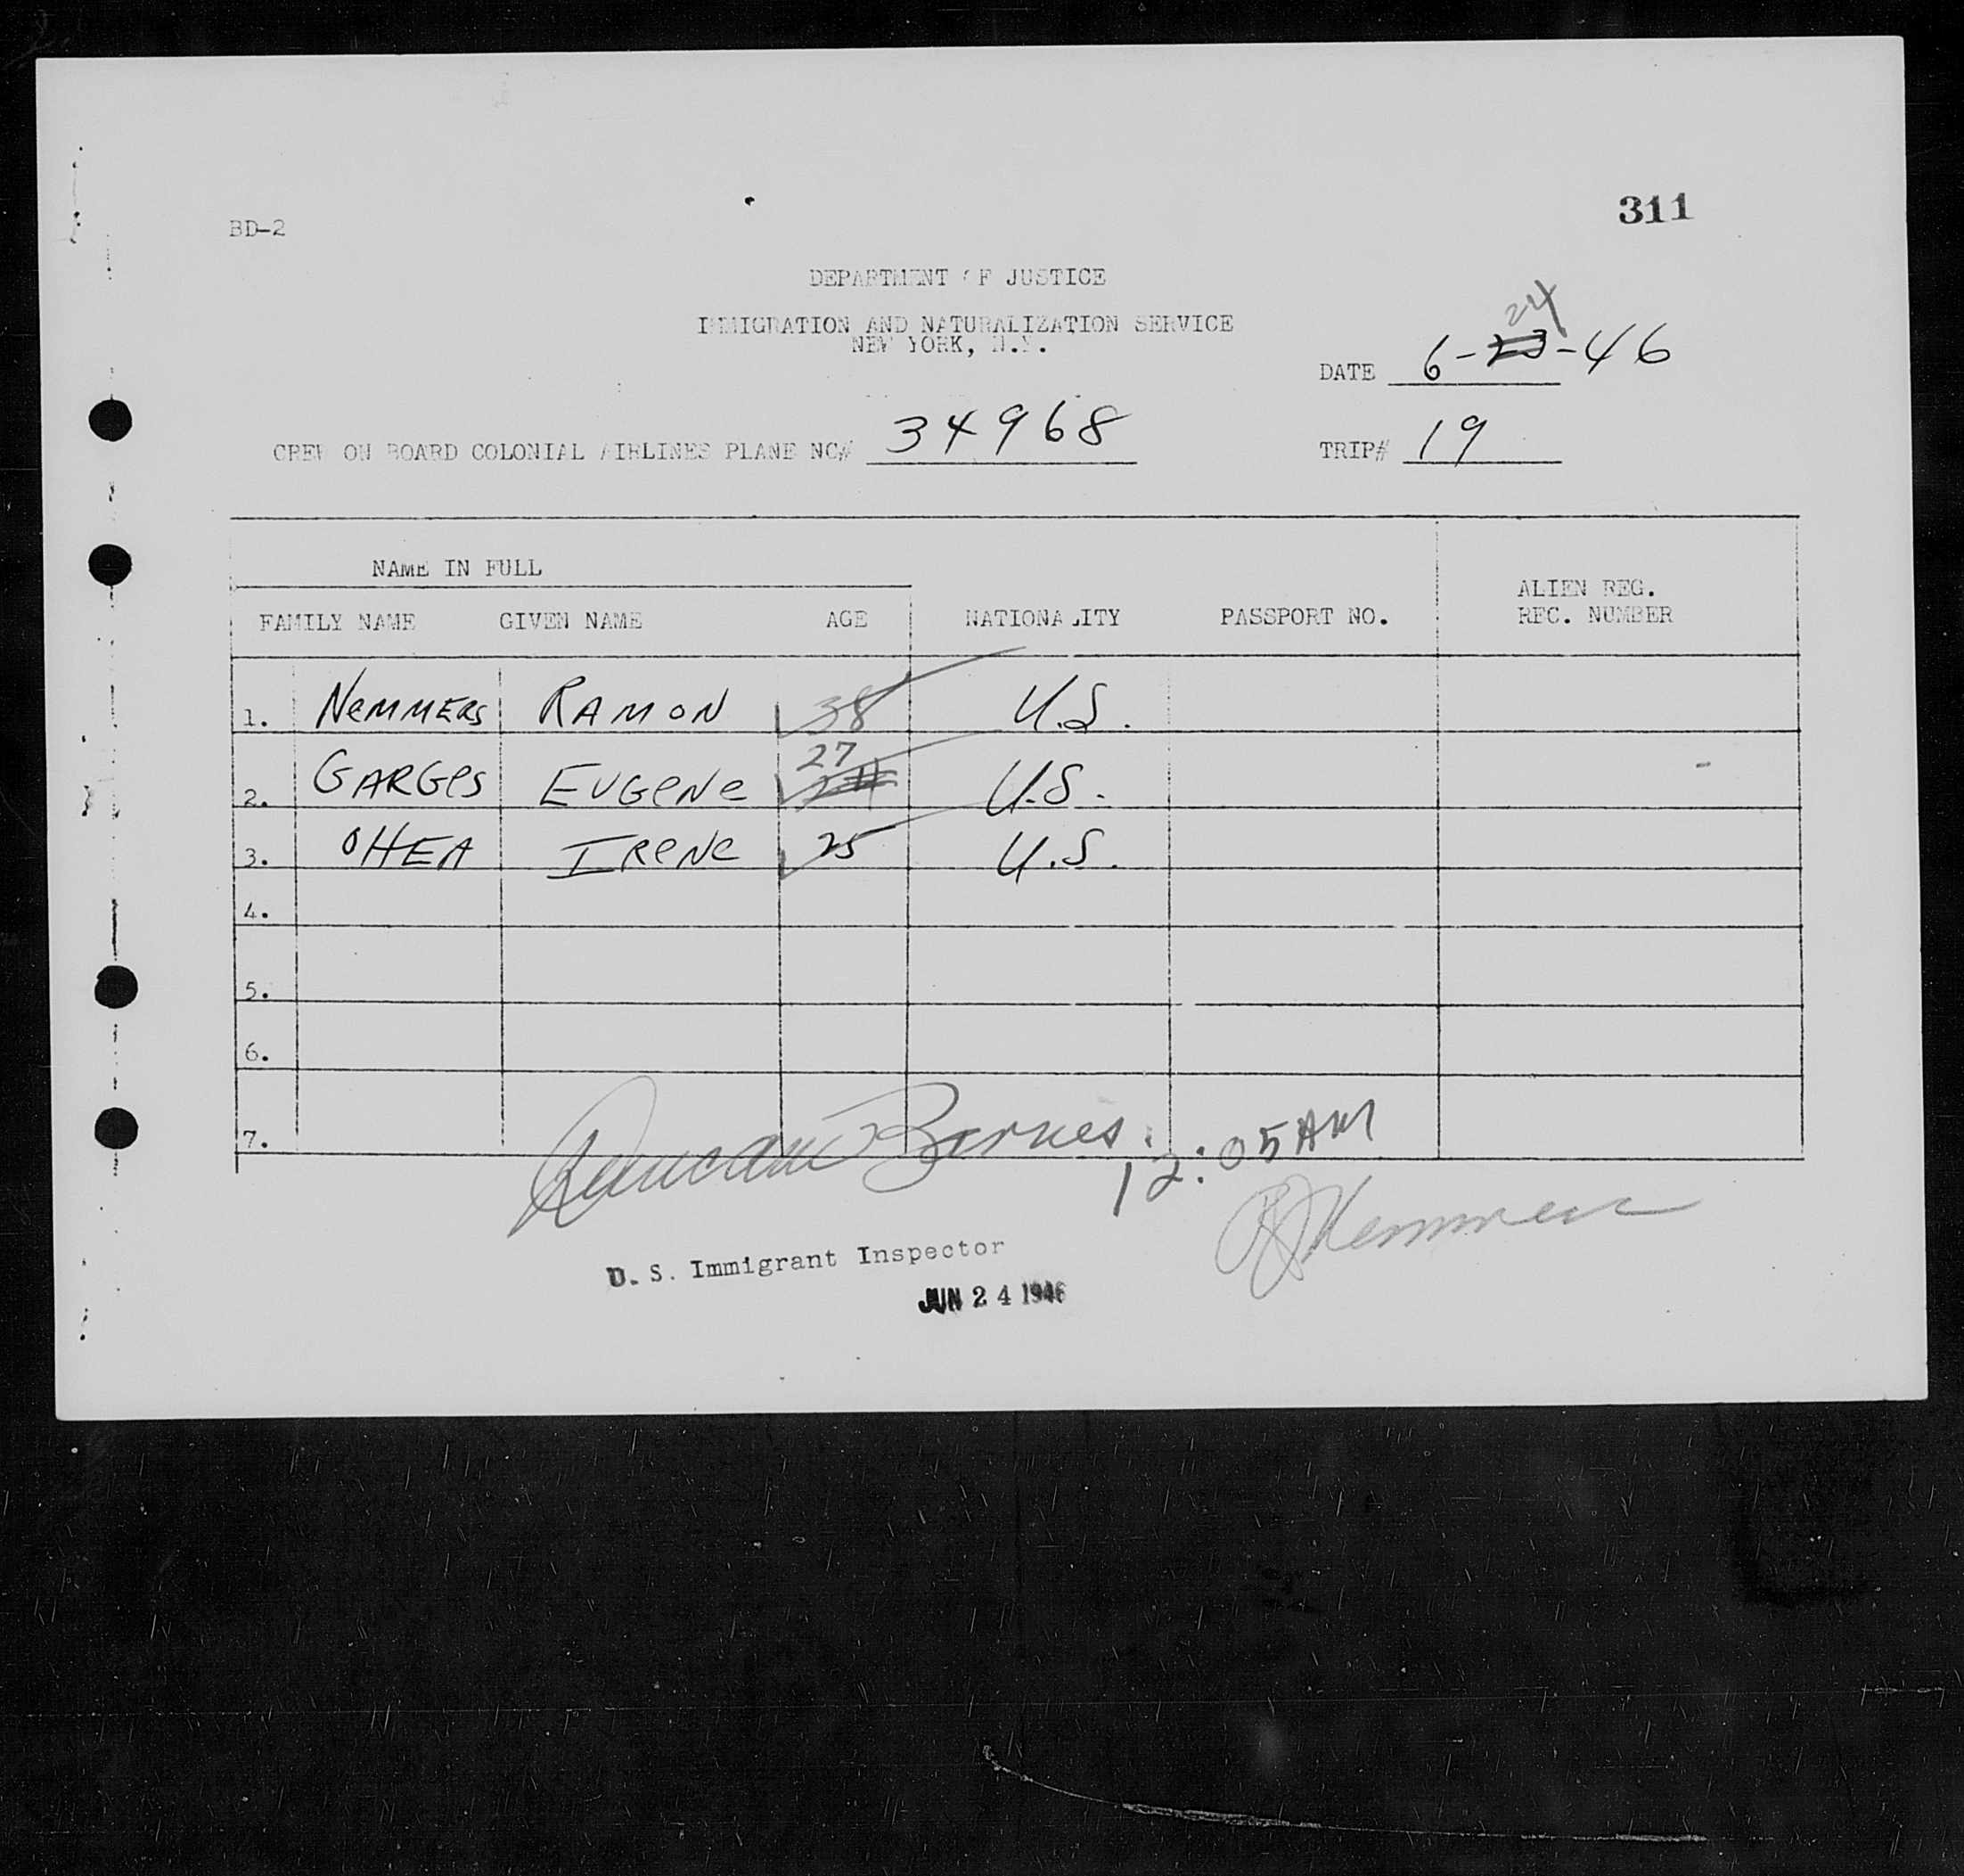 BD-2
311
DEPARTMENT OF JUSTICE
IMMIGRATION AND NATURALIZATION SERVICE
NEW YORK, N.Y.
24
DATE 6-23-46
CREW ON BOARD COLONIAL AIRLINES PLANE NC# 34968 TRIP# 19
NAME IN FULL
ALIEN REG.
FAMILY NAME GIVEN NAME AGE NATIONALITY PASSPORT NO. REC. NUMBER
1. NEMMERS RAMON 38 U.S.
27
2. GARGES EUGENE U.S.
3. OHEA IRENE 25 U.S.
4.
5.
6.
7.
Duncan Barnes.
12:05 AM
RJ Nemmers
U. S. Immigrant Inspector
JUN 24 1946